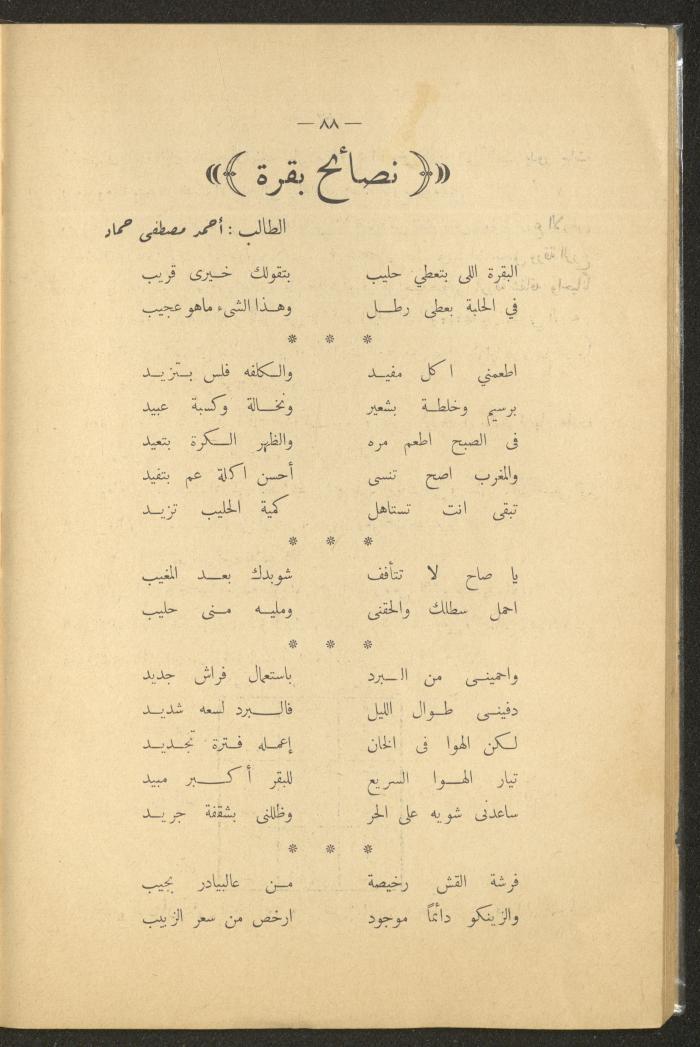 — ٨٨ —
«﴿ نصائح بقرة ﴾»
الطالب : أحمد مصطفى حماد
البقرة اللى بتعطي حليب بتقولك خيرى قريب
في الحلبة بعطى رطل وهذا الشىء ماهو عجيب
* * *
اطعمني اكل مفيد والكلفه فلس بتزيد
برسيم وخلطة بشعير ونخالة وكسبة عبيد
فى الصبح اطعم مره والظهر الكرة بتعيد
والمغرب اصح تنسى أحسن اكلة عم بتفيد
تبقى انت تستاهل كمية الحليب تزيد
* * *
يا صاح لا تتأفف شوبدك بعد المغيب
احمل سطلك والحقنى ومليه منى حليب
* * *
واحمينى من البرد باستعمال فراش جديد
دفينى طوال الليل فالبرد لسعه شديد
لكن الهوا فى الخان إعمله فترة تجديد
تيار الهوا السريع للبقر أكبر مبيد
ساعدنى شويه على الحر وظللنى بشقفة جريد
* * *
فرشة القش رخيصة من عالبيادر بجيب
والزينكو دائماً موجود ارخص من سعر الزبيب